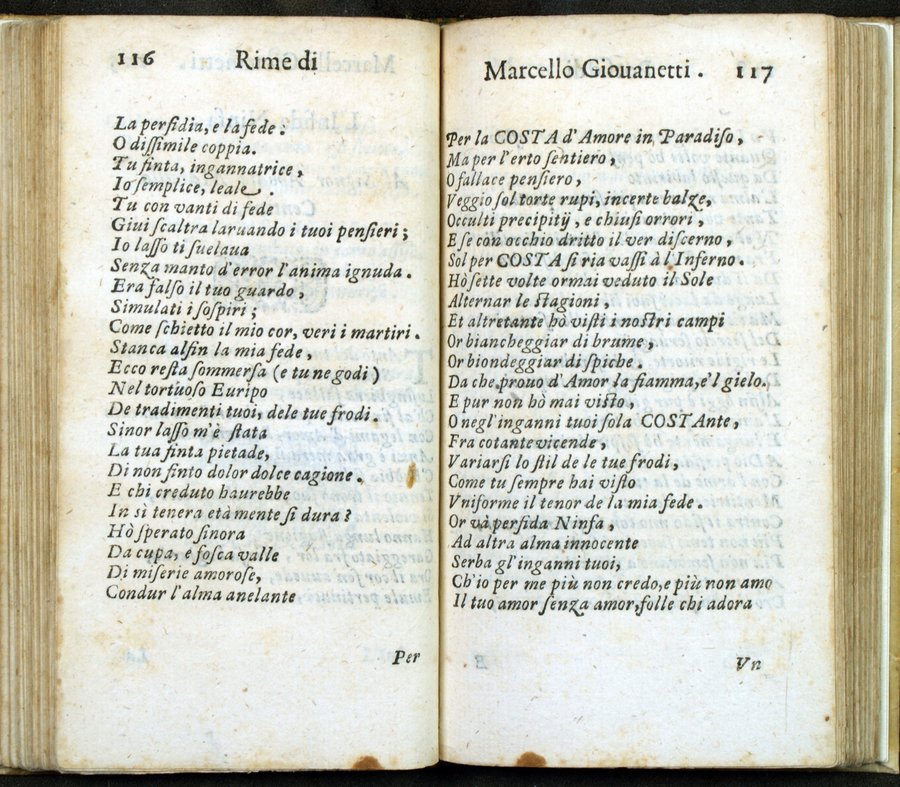 116 Rime di
La perfidia, e la fede:
O dissimile coppia.
Tu finta, ingannatrice,
Io semplice, leale.
Tu con vanti di fede
Giui scaltra laruando i tuoi pensieri;
Io lasso ti suelaua
Senza manto d'error l'anima ignuda.
Era falso il tuo guardo,
Simulati i sospiri;
Come schietto il mio cor, veri i martiri.
Stanca alfin la mia fede,
Ecco resta sommersa (e tu ne godi)
Nel tortuoso Euripo
De tradimenti tuoi, dele tue frodi.
Sinor lasso m'è stata
La tua finta pietade,
Di non finto dolor dolce cagione.
E chi creduto haurebbe
In sì tenera età mente si dura?
Hò sperato sinora
Da cupa, e fosca valle
Di miserie amorose,
Condur l'alma anelante
Per
Marcello Giouanetti. 117
Per la COSTA d'Amore in Paradiso,
Ma per l'erto sentiero,
O fallace pensiero,
Veggio sol torte rupi, incerte balze,
Occulti precipitij, e chiusi orrori,
E se con occhio dritto il ver discerno,
Sol per COSTA si ria vassi à l'Inferno.
Hò sette volte ormai veduto il Sole
Alternar le stagioni,
Et altretante hò visti i nostri campi
Or biancheggiar di brume,
Or biondeggiar di spiche.
Da che prouo d'Amor la fiamma, e'l gielo.
E pur non hò mai visto,
O negl'inganni tuoi sola COSTAnte,
Fra cotante vicende,
Variarsi lo stil de le tue frodi,
Come tu sempre hai visto
Vniforme il tenor de la mia fede.
Or và perfida Ninfa,
Ad altra alma innocente
Serba gl'inganni tuoi,
Ch'io per me più non credo, e più non amo
Il tuo amor senza amor, folle chi adora
Vn